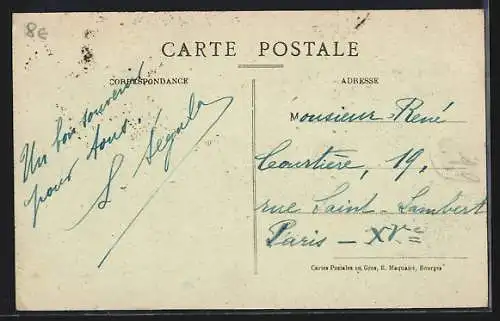 8€
CARTE POSTALE
CORRESPONDANCE
ADRESSE
Un bon souvenir
pour tous.
S. Segula
Monsieur René
Courtière, 19,
rue Saint-Lambert
Paris - XVe
Cartes Postales en Gros, E. Maquaire, Bourges